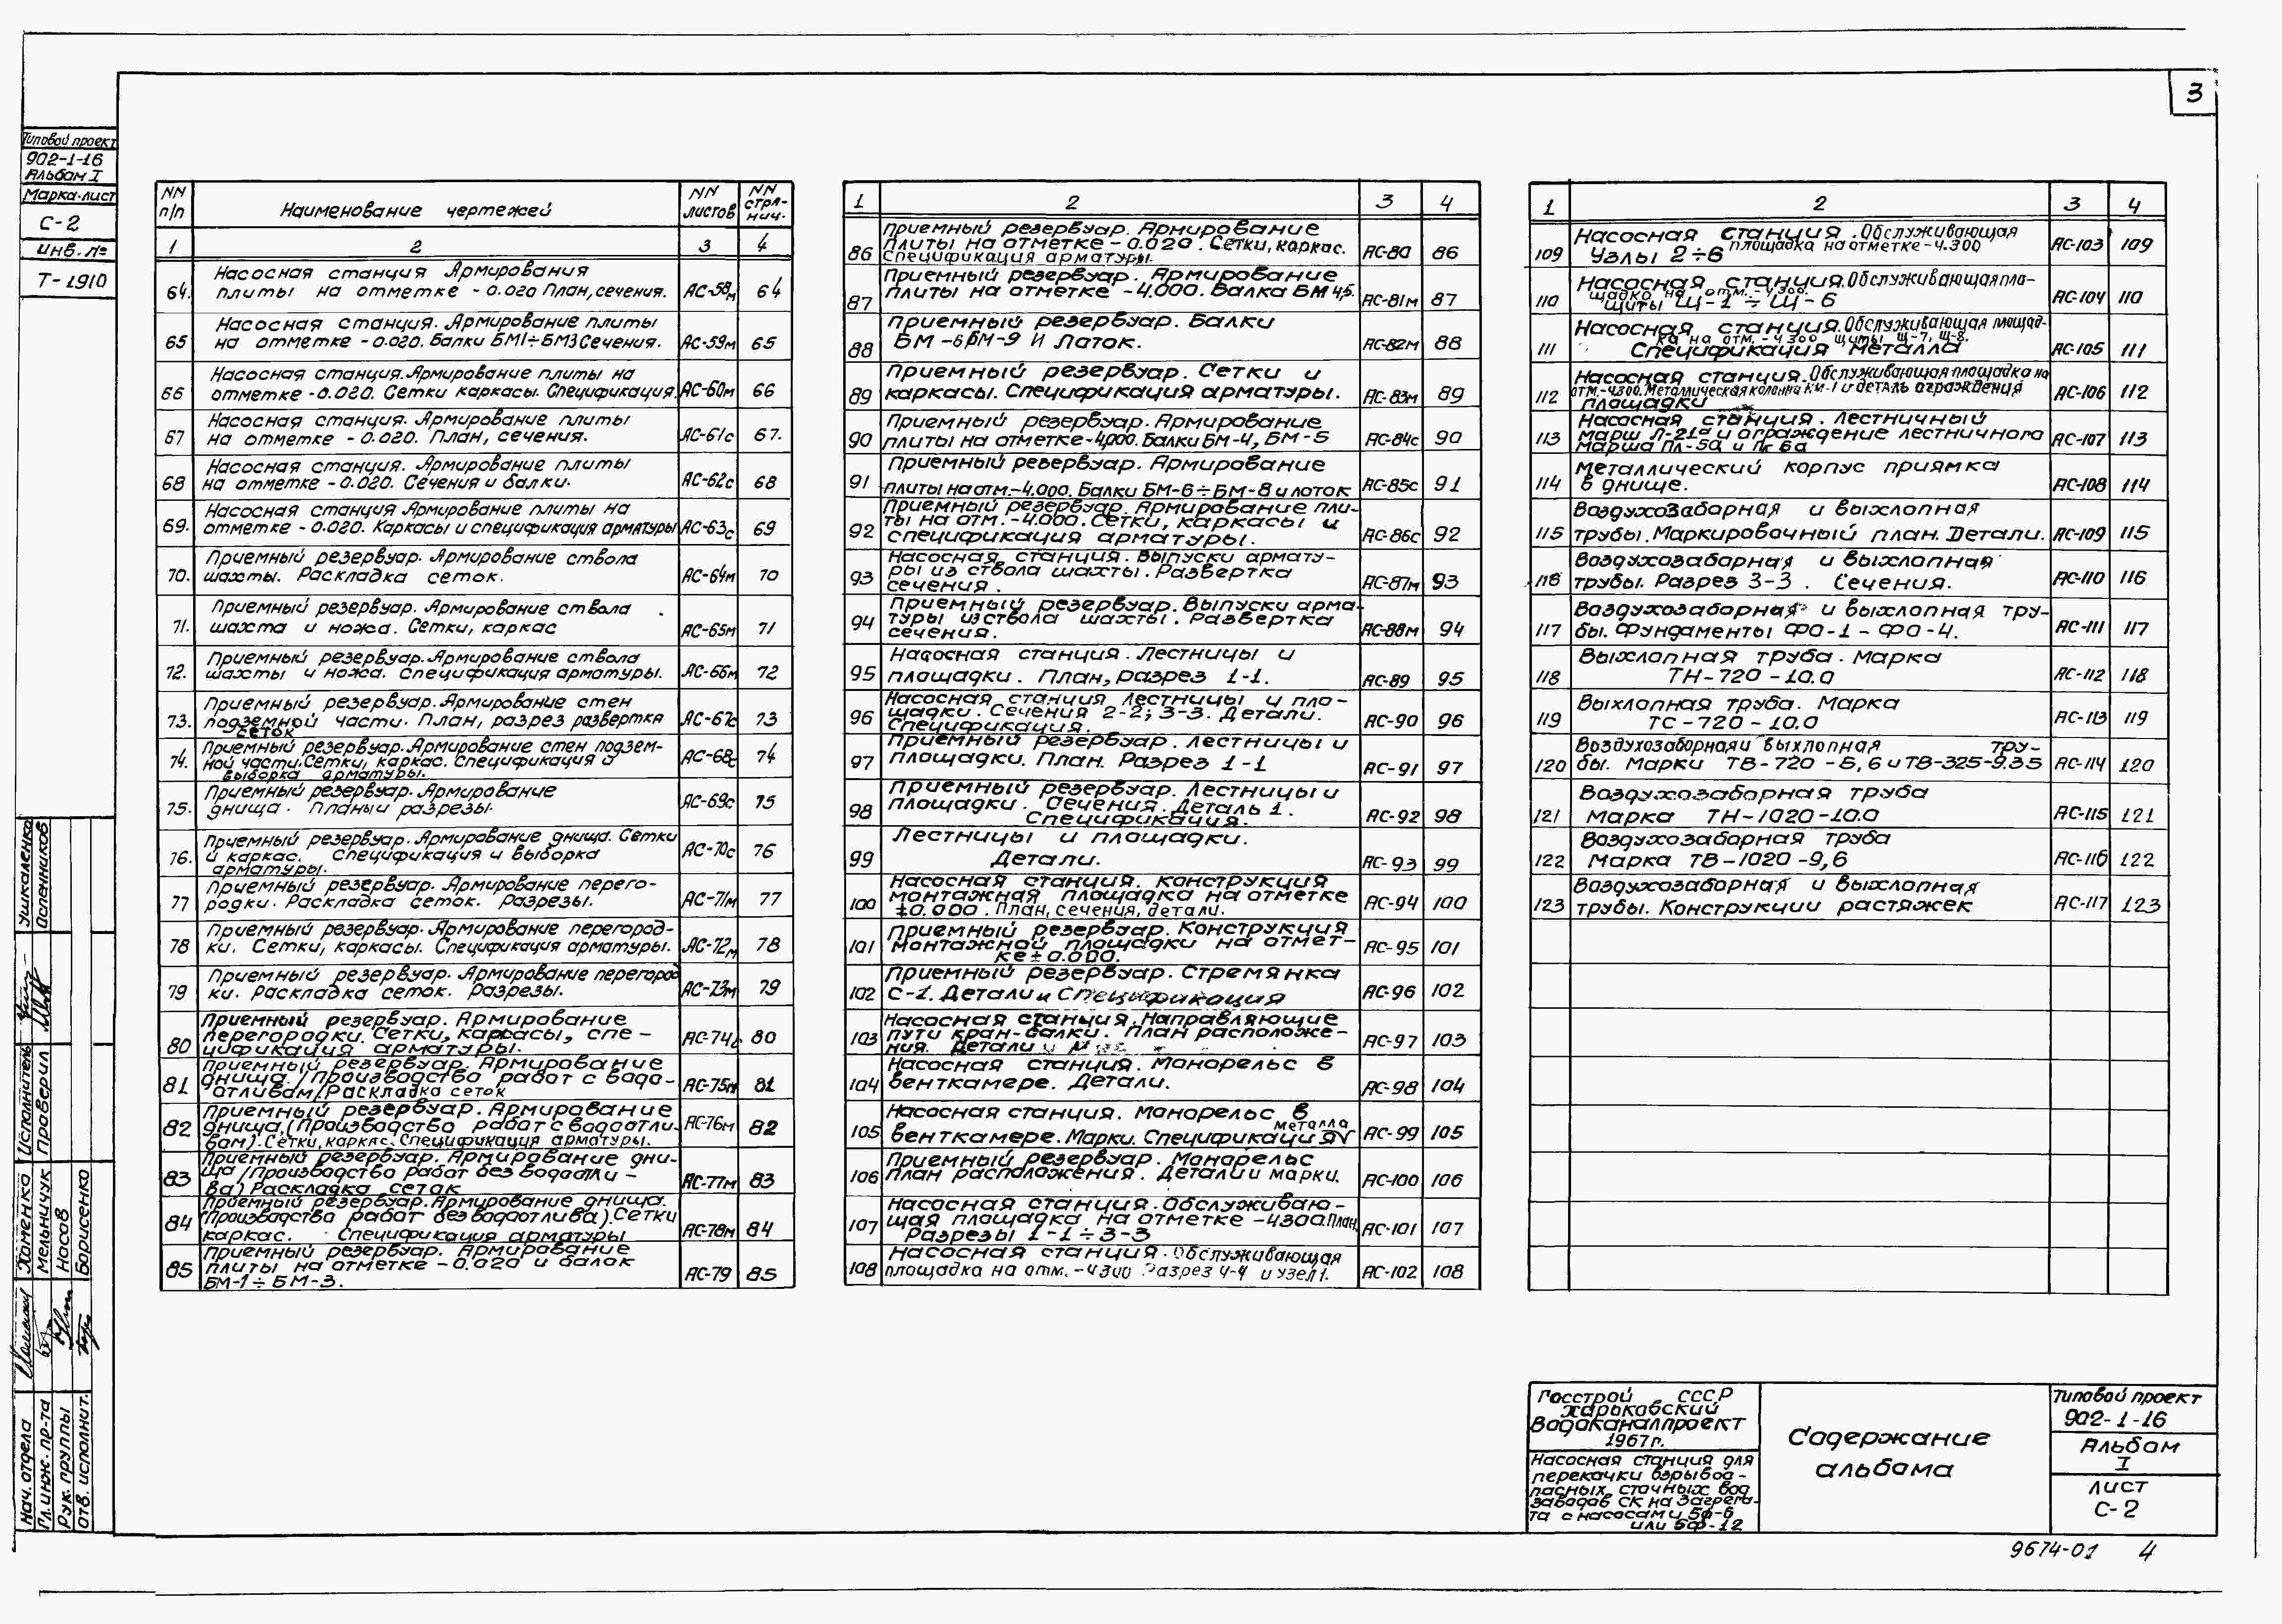 3
Типовой проект
902-1-16
Альбом I
Марка-лист
С-2
Инв. №
Т-1910
NN п/п
Наименование чертежей
NN листов
NN стра-
нич.
1 2 3 4
64. Насосная станция Армирования
плиты на отметке -0.020 План, сечения. АС-58м 64
65 Насосная станция. Армирование плиты
на отметке -0.020. Балки БМ1÷БМ3 Сечения. АС-59м 65
66 Насосная станция. Армирование плиты на
отметке -0.020. Сетки каркасы. Спецификация. АС-60м 66
67 Насосная станция. Армирование плиты
на отметке -0.020. План, сечения. АС-61с 67.
68 Насосная станция. Армирование плиты
на отметке -0.020. Сечения и балки. АС-62с 68
69. Насосная станция Армирование плиты на
отметке -0.020. Каркасы и спецификация арматуры АС-63с 69
70. Приемный резервуар. Армирование ствола
шахты. Раскладка сеток. АС-64м 70
71. Приемный резервуар. Армирование ствола
шахта и ножа. Сетки, каркас АС-65м 71
72. Приемный резервуар. Армирование ствола
шахты и ножа. Спецификация арматуры. АС-66м 72
73. Приемный резервуар. Армирование стен
подземной части. План, разрез развертка
сеток АС-67с 73
74. Приемный резервуар. Армирование стен подзем-
ной части. Сетки, каркас. Спецификация и
выборка арматуры. АС-68с 74
75. Приемный резервуар. Армирование
днища. Планы и разрезы. АС-69с 75
76. Приемный резервуар. Армирование днища. Сетки
и каркас. Спецификация и выборка
арматуры. АС-70с 76
77 Приемный резервуар. Армирование перего-
родки. Раскладка сеток. Разрезы. АС-71м 77
78 Приемный резервуар. Армирование перегород-
ки. Сетки, каркасы. Спецификация арматуры. АС-72м 78
79 Приемный резервуар. Армирование перегород
ки. Раскладка сеток. Разрезы. АС-73м 79
80 Приемный резервуар. Армирование
перегородки. Сетки, каркасы, спе-
цификация арматуры. АС-74с 80
81 Приемный резервуар. Армирование
днища. /Производство работ с водо-
отливам/. Раскладка сеток АС-75м 81
82 Приемный резервуар. Армирование
днища. (Производство работ с водоотли-
вам). Сетки, каркас. Спецификация арматуры. АС-76м 82
83 Приемный резервуар. Армирование дни-
ща /Производство работ без водоотли-
ва) Раскладка сеток АС-77м 83
84 Приемный резервуар. Армирование днища.
(Производства работ без водоотлива). Сетки
каркас. Спецификация арматуры АС-78м 84
85 Приемный резервуар. Армирование
плиты на отметке -0.020 и балок
БМ-1÷БМ-3. АС-79 85
1 2 3 4
86 Приемный резервуар. Армирование
плиты на отметке -0.020. Сетки, каркас.
Спецификация арматуры. АС-80 86
87 Приемный резервуар. Армирование
плиты на отметке -4.000. Балка БМ 4,5. АС-81м 87
88 Приемный резервуар. Балки
БМ-6БМ-9 и лоток. АС-82м 88
89 Приемный резервуар. Сетки и
каркасы. Спецификация арматуры. АС-83м 89
90 Приемный резервуар. Армирование
плиты на отметке-4,000. Балки БМ-4, БМ-5 АС-84с 90
91 Приемный резервуар. Армирование
плиты на отм.-4.000. Балки БМ-6÷БМ-8 и лоток АС-85с 91
92 Приемный резервуар. Армирование пли-
ты на отм.-4.000. Сетки, каркасы и
спецификация арматуры. АС-86с 92
93 Насосная станция. Выпуски армату-
ры из ствола шахты. Развертка
сечения. АС-87м 93
94 Приемный резервуар. Выпуски арма-
туры из ствола шахты. Развертка
сечения. АС-88м 94
95 Насосная станция. Лестницы и
площадки. План, разрез 1-1. АС-89 95
96 Насосная станция Лестницы и пло-
щадки. Сечения 2-2; 3-3. Детали.
Спецификация. АС-90 96
97 Приемный резервуар. Лестницы и
площадки. План. Разрез 1-1 АС-91 97
98 Приемный резервуар. Лестницы и
площадки. Сечения. Деталь 1.
Спецификация. АС-92 98
99 Лестницы и площадки.
Детали. АС-93 99
100 Насосная станция. Конструкция
монтажная площадка на отметке
±0.000. План, сечения, детали. АС-94 100
101 Приемный резервуар. Конструкция
монтажной площадки на отмет-
ке ±0.000. АС-95 101
102 Приемный резервуар. Стремянка
С-1. Детали и Спецификация АС-96 102
103 Насосная станция. Направляющие
пути кран-балки. План расположе-
ния. Детали АС-97 103
104 Насосная станция. Монорельс в
венткамере. Детали. АС-98 104
105 Насосная станция. Монорельс в
венткамере. Марки. Спецификация металла АС-99 105
106 Приемный резервуар. Монорельс
план расположения. Детали и марки. АС-100 106
107 Насосная станция. Обслуживаю-
щая площадка на отметке -4300. План.
Разрезы 1-1÷3-3 АС-101 107
108 Насосная станция. Обслуживающая
площадка на отм. -4300 Разрез 4-4 и узел 1. АС-102 108
1 2 3 4
109 Насосная станция. Обслуживающая
площадка на отметке-4.300
Узлы 2÷6 АС-103 109
110 Насосная станция. Обслуживающая пло-
щадка на отм. -4.300.
щиты Щ-1÷Щ-6 АС-104 110
111 Насосная станция. Обслуживающая площад-
ка на отм. -4300 щиты Щ-7, Щ-8.
Спецификация металла АС-105 111
112 Насосная станция. Обслуживающая площадка на
отм.-4.300. Металлическая колонна КМ-1 и деталь ограждения
площадки АС-106 112
113 Насосная станция. Лестничный
марш Л-21а и ограждение лестничного
марша Пл-5а и Пк 6а АС-107 113
114 Металлический корпус приямка
в днище. АС-108 114
115 Воздухозаборная и выхлопная
трубы. Маркировочный план. Детали. АС-109 115
116 Воздухозаборная и выхлопная
трубы. Разрез 3-3. Сечения. АС-110 116
117 Воздухозаборная и выхлопная тру-
бы. Фундаменты ФО-1-ФО-4. АС-111 117
118 Выхлопная труба. Марка
ТН-720-10.0 АС-112 118
119 Выхлопная труба. Марка
ТС-720-10.0 АС-113 119
120 Воздухозаборная и выхлопная тру-
бы. Марки ТВ-720-5,6 и ТВ-325-9.35 АС-114 120
121 Воздухозаборная труба
Марка ТН-1020-10.0 АС-115 121
122 Воздухозаборная труба
Марка ТВ-1020-9,6 АС-116 122
123 Воздухозаборная и выхлопная
трубы. Конструкции растяжек АС-117 123
Ушкаленко
Ослепников
Исполнитель
Проверил
Хоменко
Мельничук
Носов
Борисенко
Нач. отдела
Гл. инж. пр-та
Рук. группы
Отв. исполнит.
Госстрой СССР
Харьковский
Водоканалпроект
1967г.
Насосная станция для
перекачки взрывоо-
пасных сточных вод
заводов СК на 3 агрега-
та с насосами 5ф-6
или 5ф-12
Содержание
альбома
Типовой проект
902-1-16
Альбом
I
Лист
С-2
9674-01 4